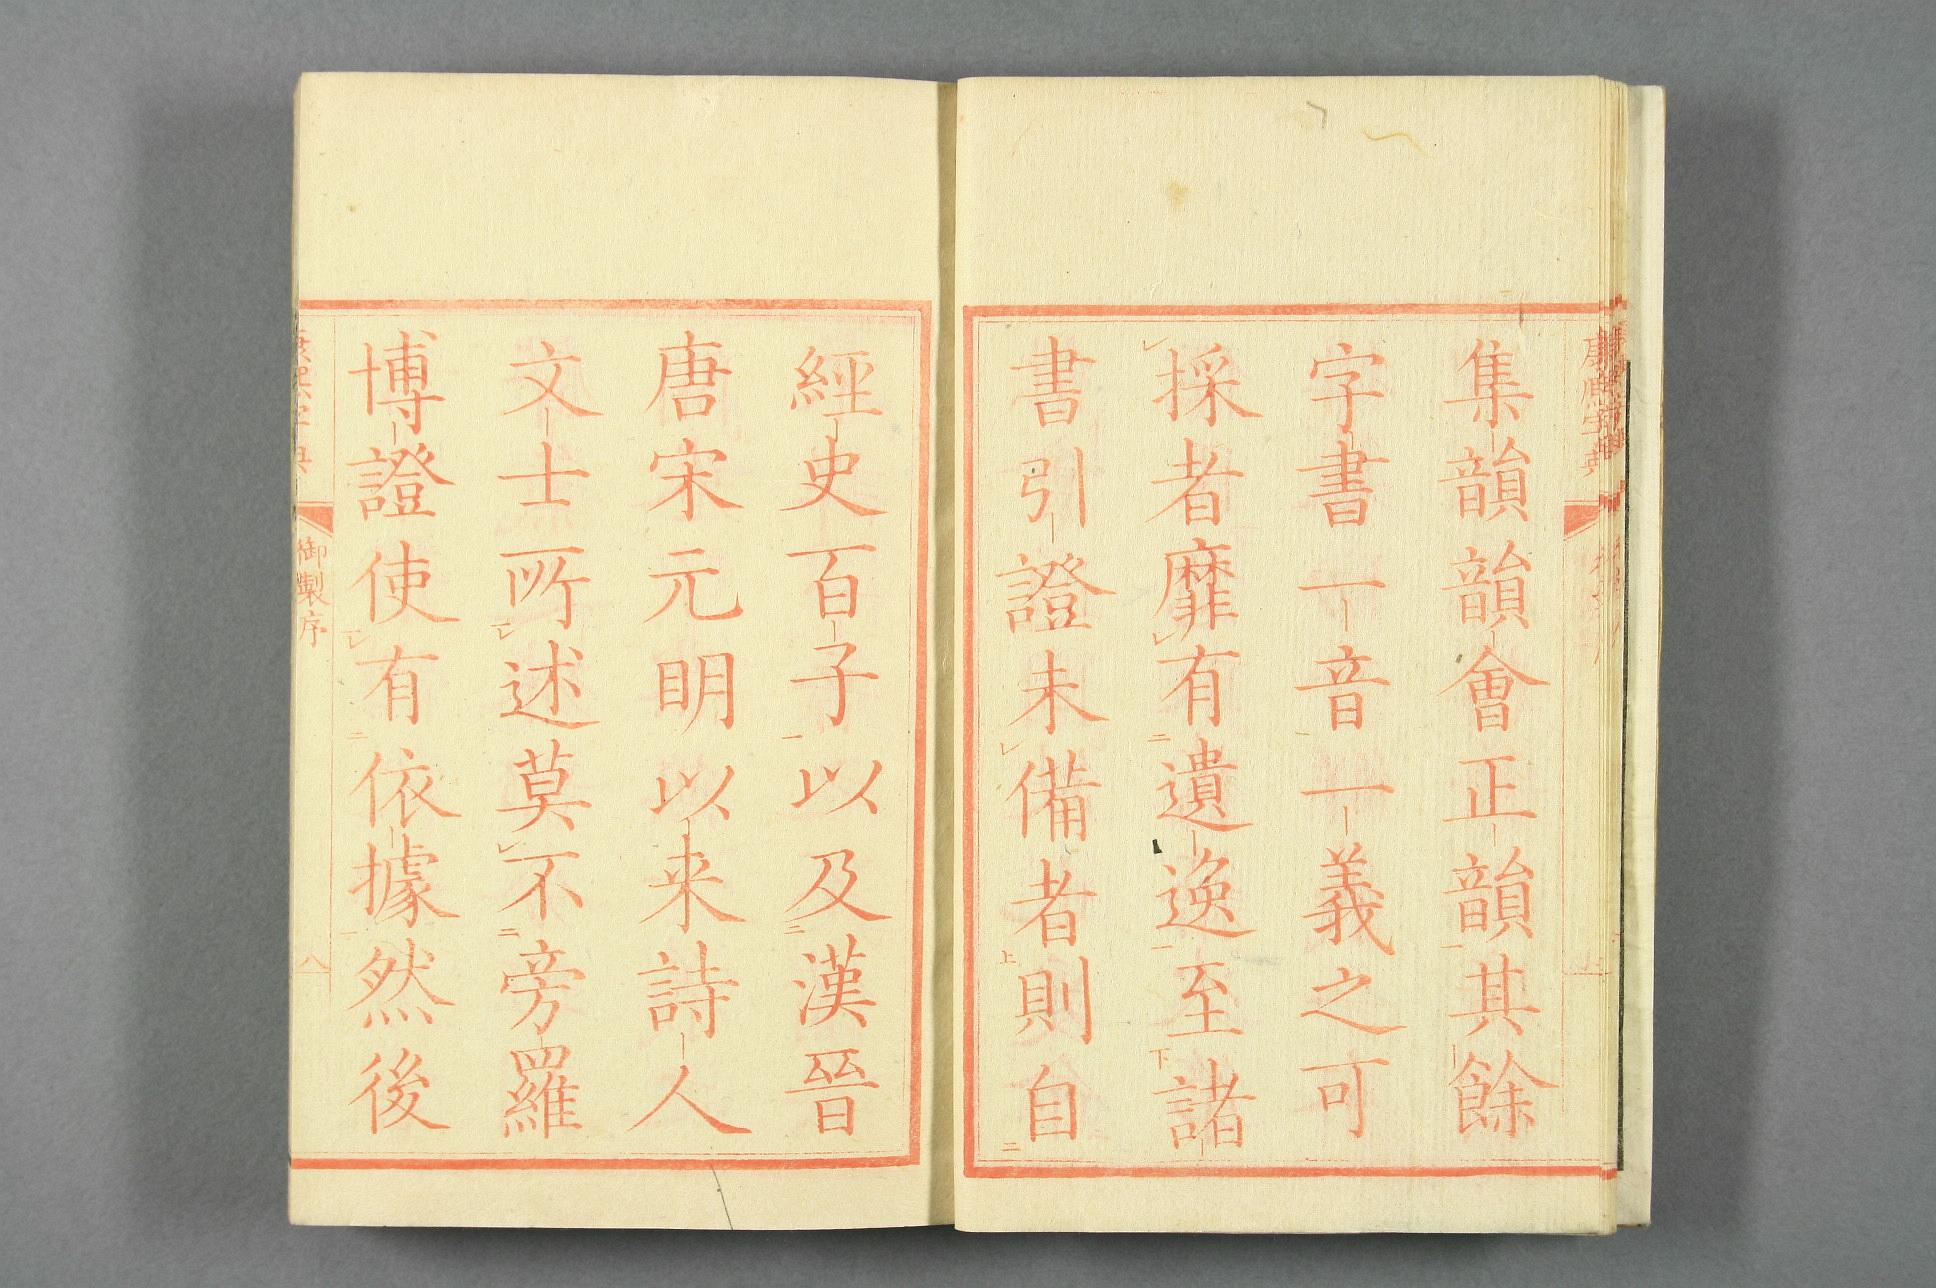 康熙字典
集韻韻會正韻其餘
字書一音一義之可
採者靡有遺逸至諸
書引證未備者則自
經史百子以及漢晉
唐宋元明以来詩人
文士所述莫不旁羅
博證使有依據然後
康熙字典
御製序
八